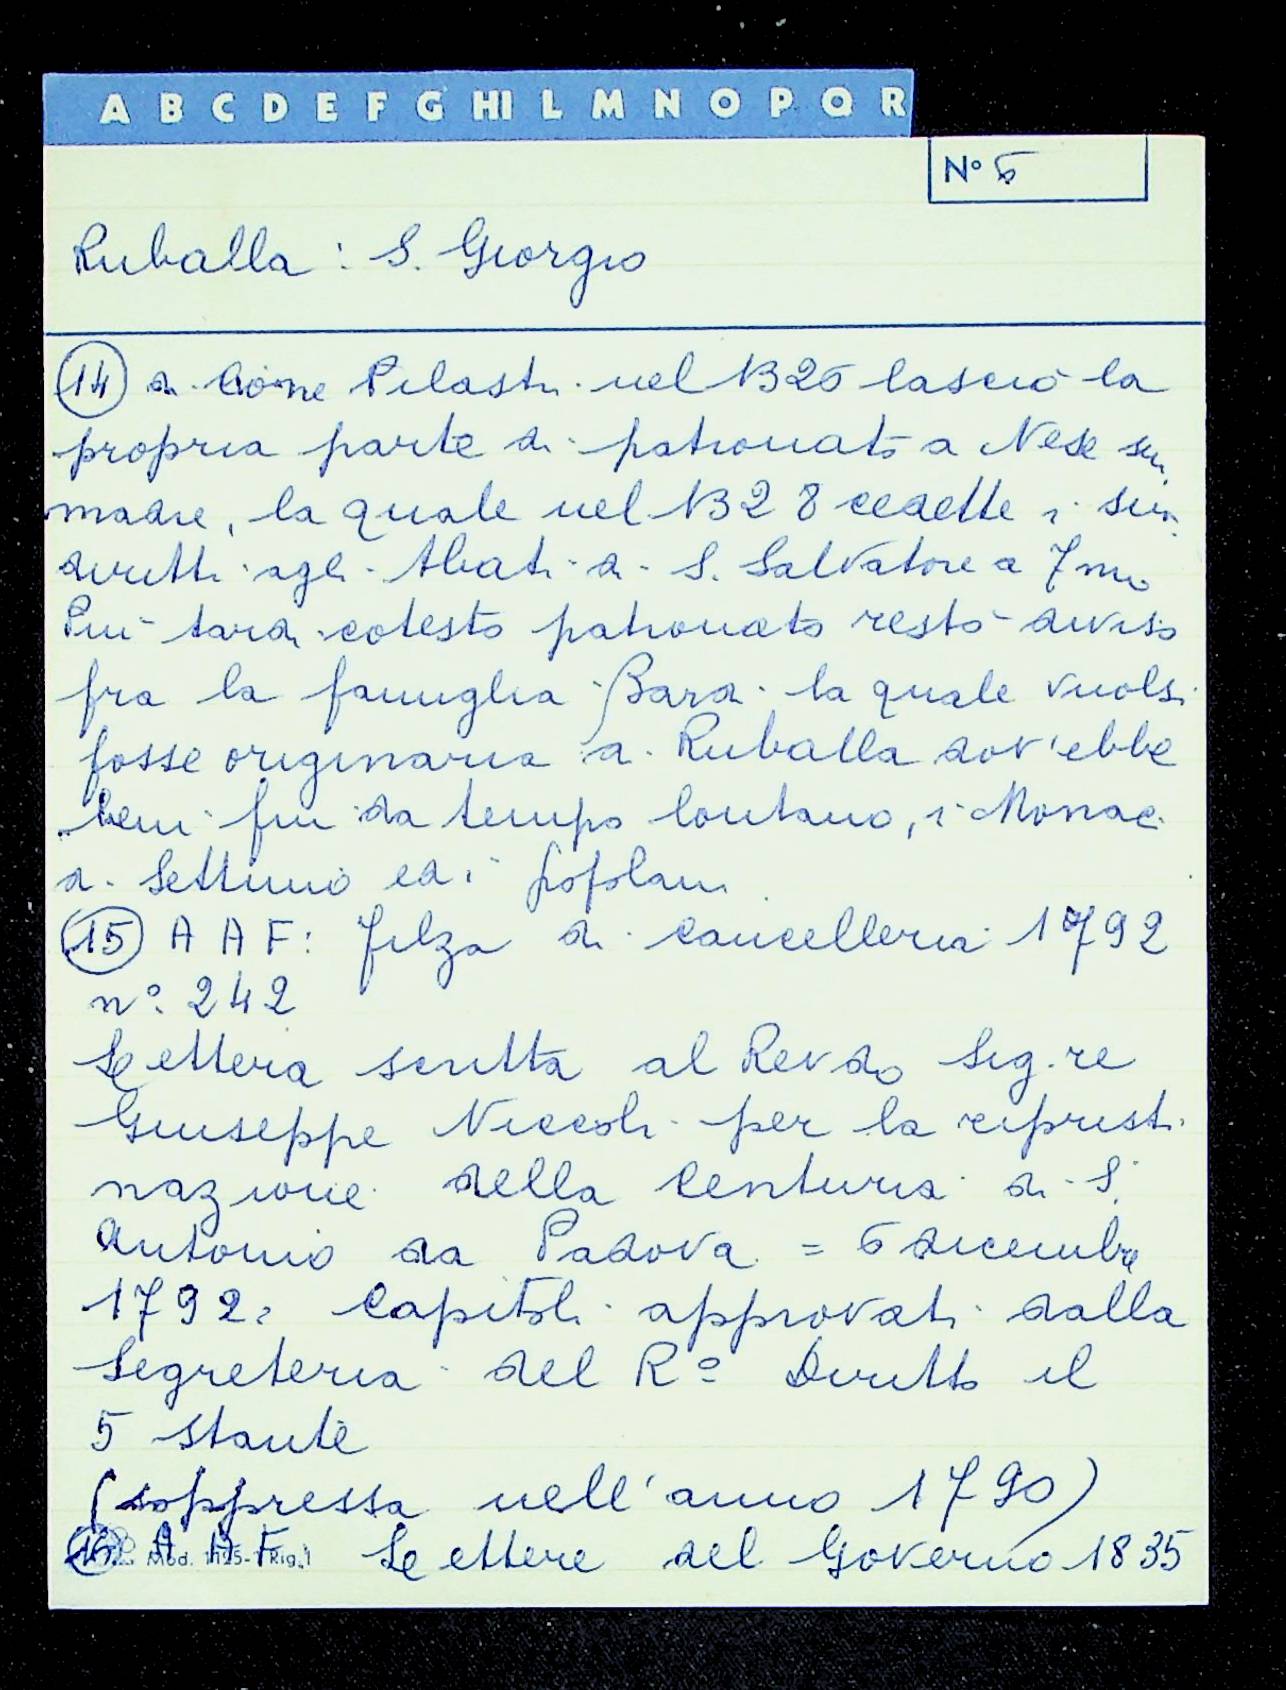 A B C D E F G HI L M N O P Q R
N° 6
Ruballa : S. Giorgio
14 di Cione Pilastri nel 1326 lasciò la
propria parte di patronato a Nese sua
madre, la quale nel 1328 cedette i suoi
diritti agli Abati di S. Salvatore a 7mo
Più tardi cotesto patronato restò diviso
fra la famiglia Bardi la quale vuolsi
fosse originaria di Ruballa dov'ebbe
beni fin da tempo lontano, i Monaci
di Settimo ed i popolani
15 A A F: Filza di cancelleria 1792
n°. 242
Lettera scritta al Revdo Sig.re
Giuseppe Niccoli per la ripristi
nazione della Centuria di S.
Antonio da Padova = 6 dicembre
1792: Capitoli approvati dalla
Segreteria del R° Diritto il
5 stante
(soppressa nell'anno 1790)
16 A A F Lettere del Governo 1835